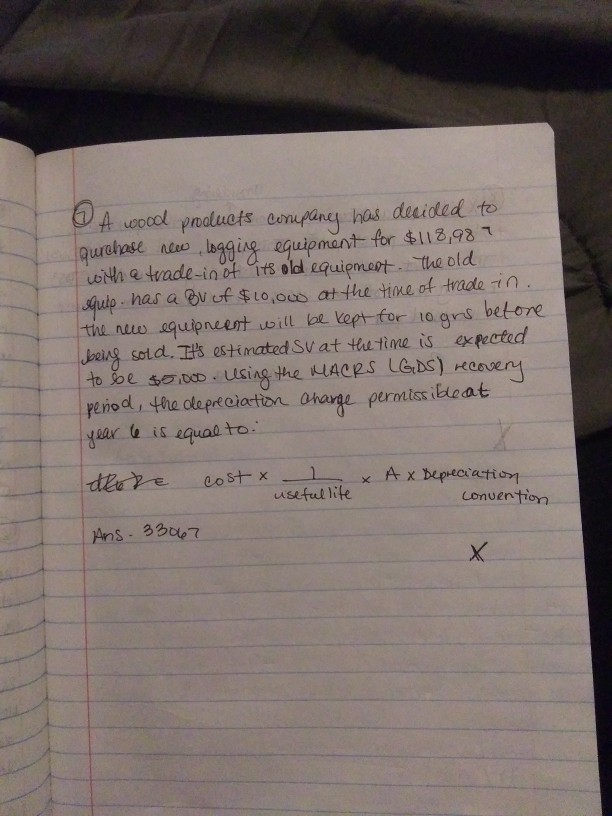 ① A wood products company has decided to
purchase new logging equipment for $118,987
with a trade-in of its old equipment. The old
equip. has a BV of $10,000 at the time of trade-in.
the new equipment will be kept for 10 yrs before
being sold. It's estimated SV at the time is expected
to be $5,000. Using the MACRS (GDS) recovery
period, the depreciation charge permissible at
year 6 is equal to:
cost × 1/useful life × A × Depreciation
convention
Ans - 33067
X